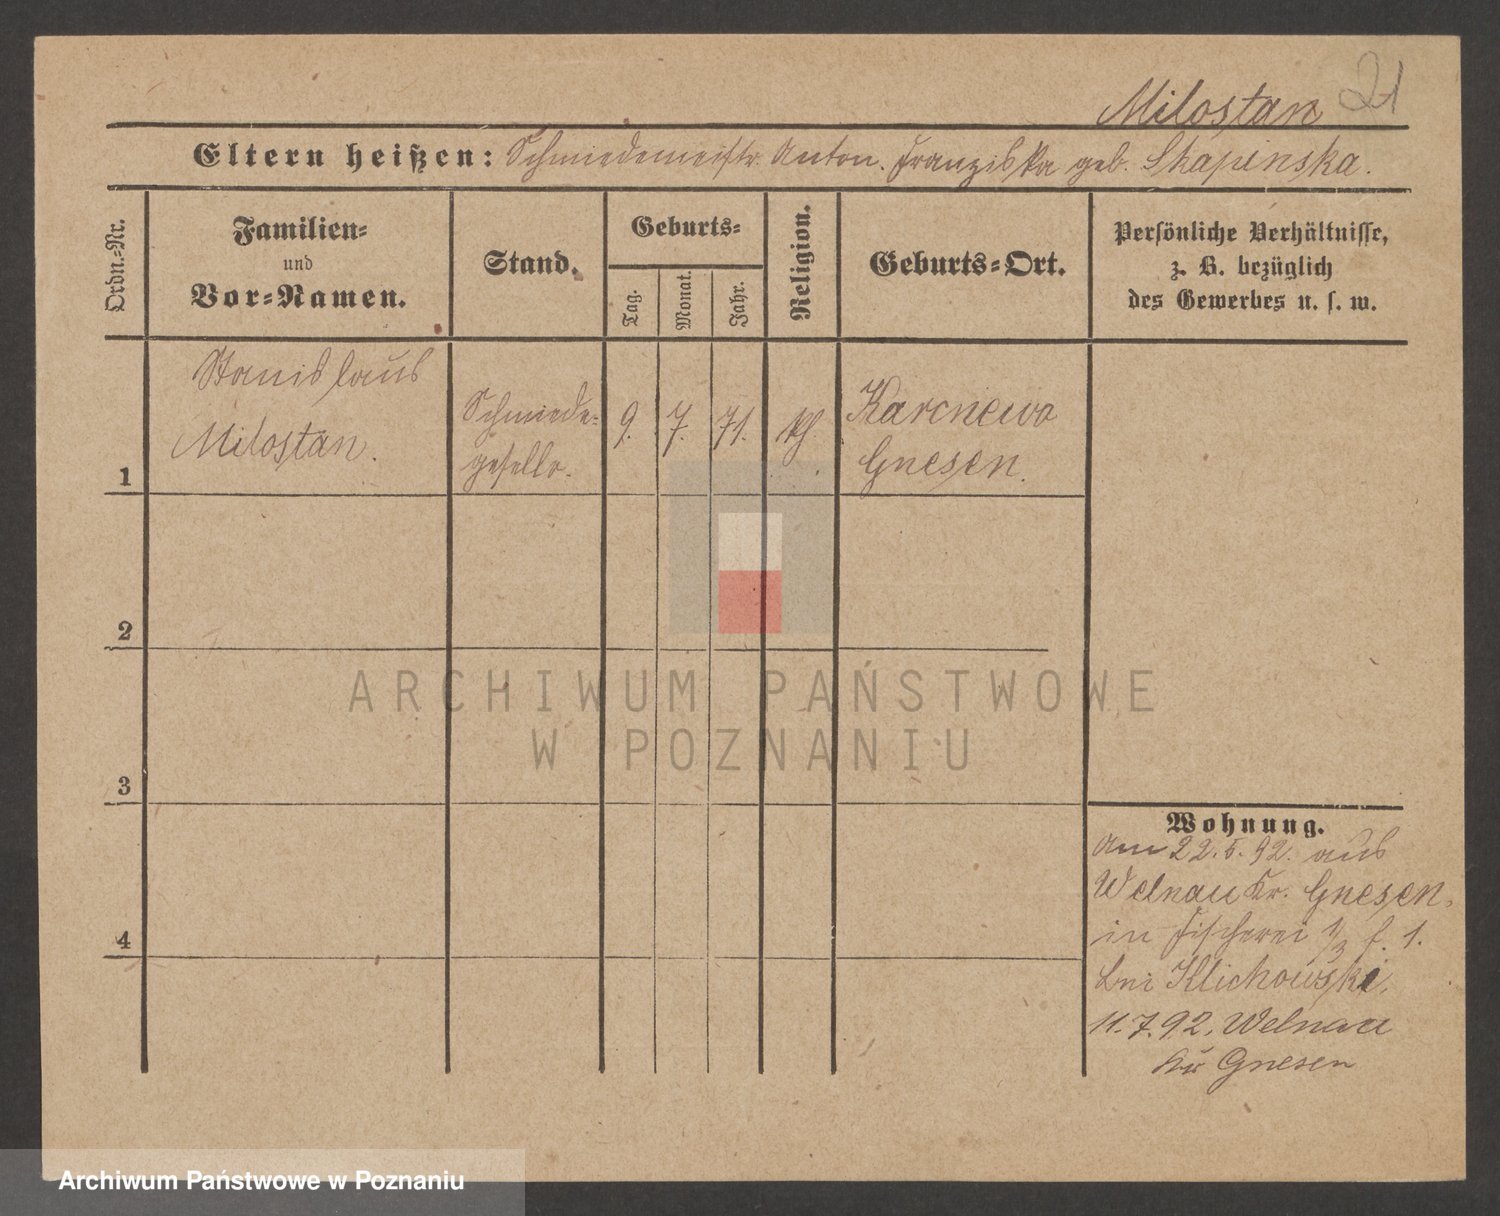 Milostan 21
Eltern heißen: Schmiedemeistr. Anton. Franziska geb. Skapinska.
Ordn.-Nr.
Familien-
und
Vor-Namen.
Stand.
Geburts-
Tag.
Monat.
Jahr.
Religion.
Geburts-Ort.
Persönliche Verhältnisse,
z. B. bezüglich
des Gewerbes u. s. w.
1
Stanislaus
Milostan.
Schmiede-
geselle.
9. 7. 71.
kth.
Karcnewo
Gnesen.
2
3
4
Wohnung.
Am 22.5.92. aus
Welnau Kr. Gnesen,
in Fischerei 1/3 f. 1.
bei Klichowski,
11.7.92. Welnau
Kr Gnesen
ARCHIWUM PAŃSTWOWE
W POZNANIU
Archiwum Państwowe w Poznaniu